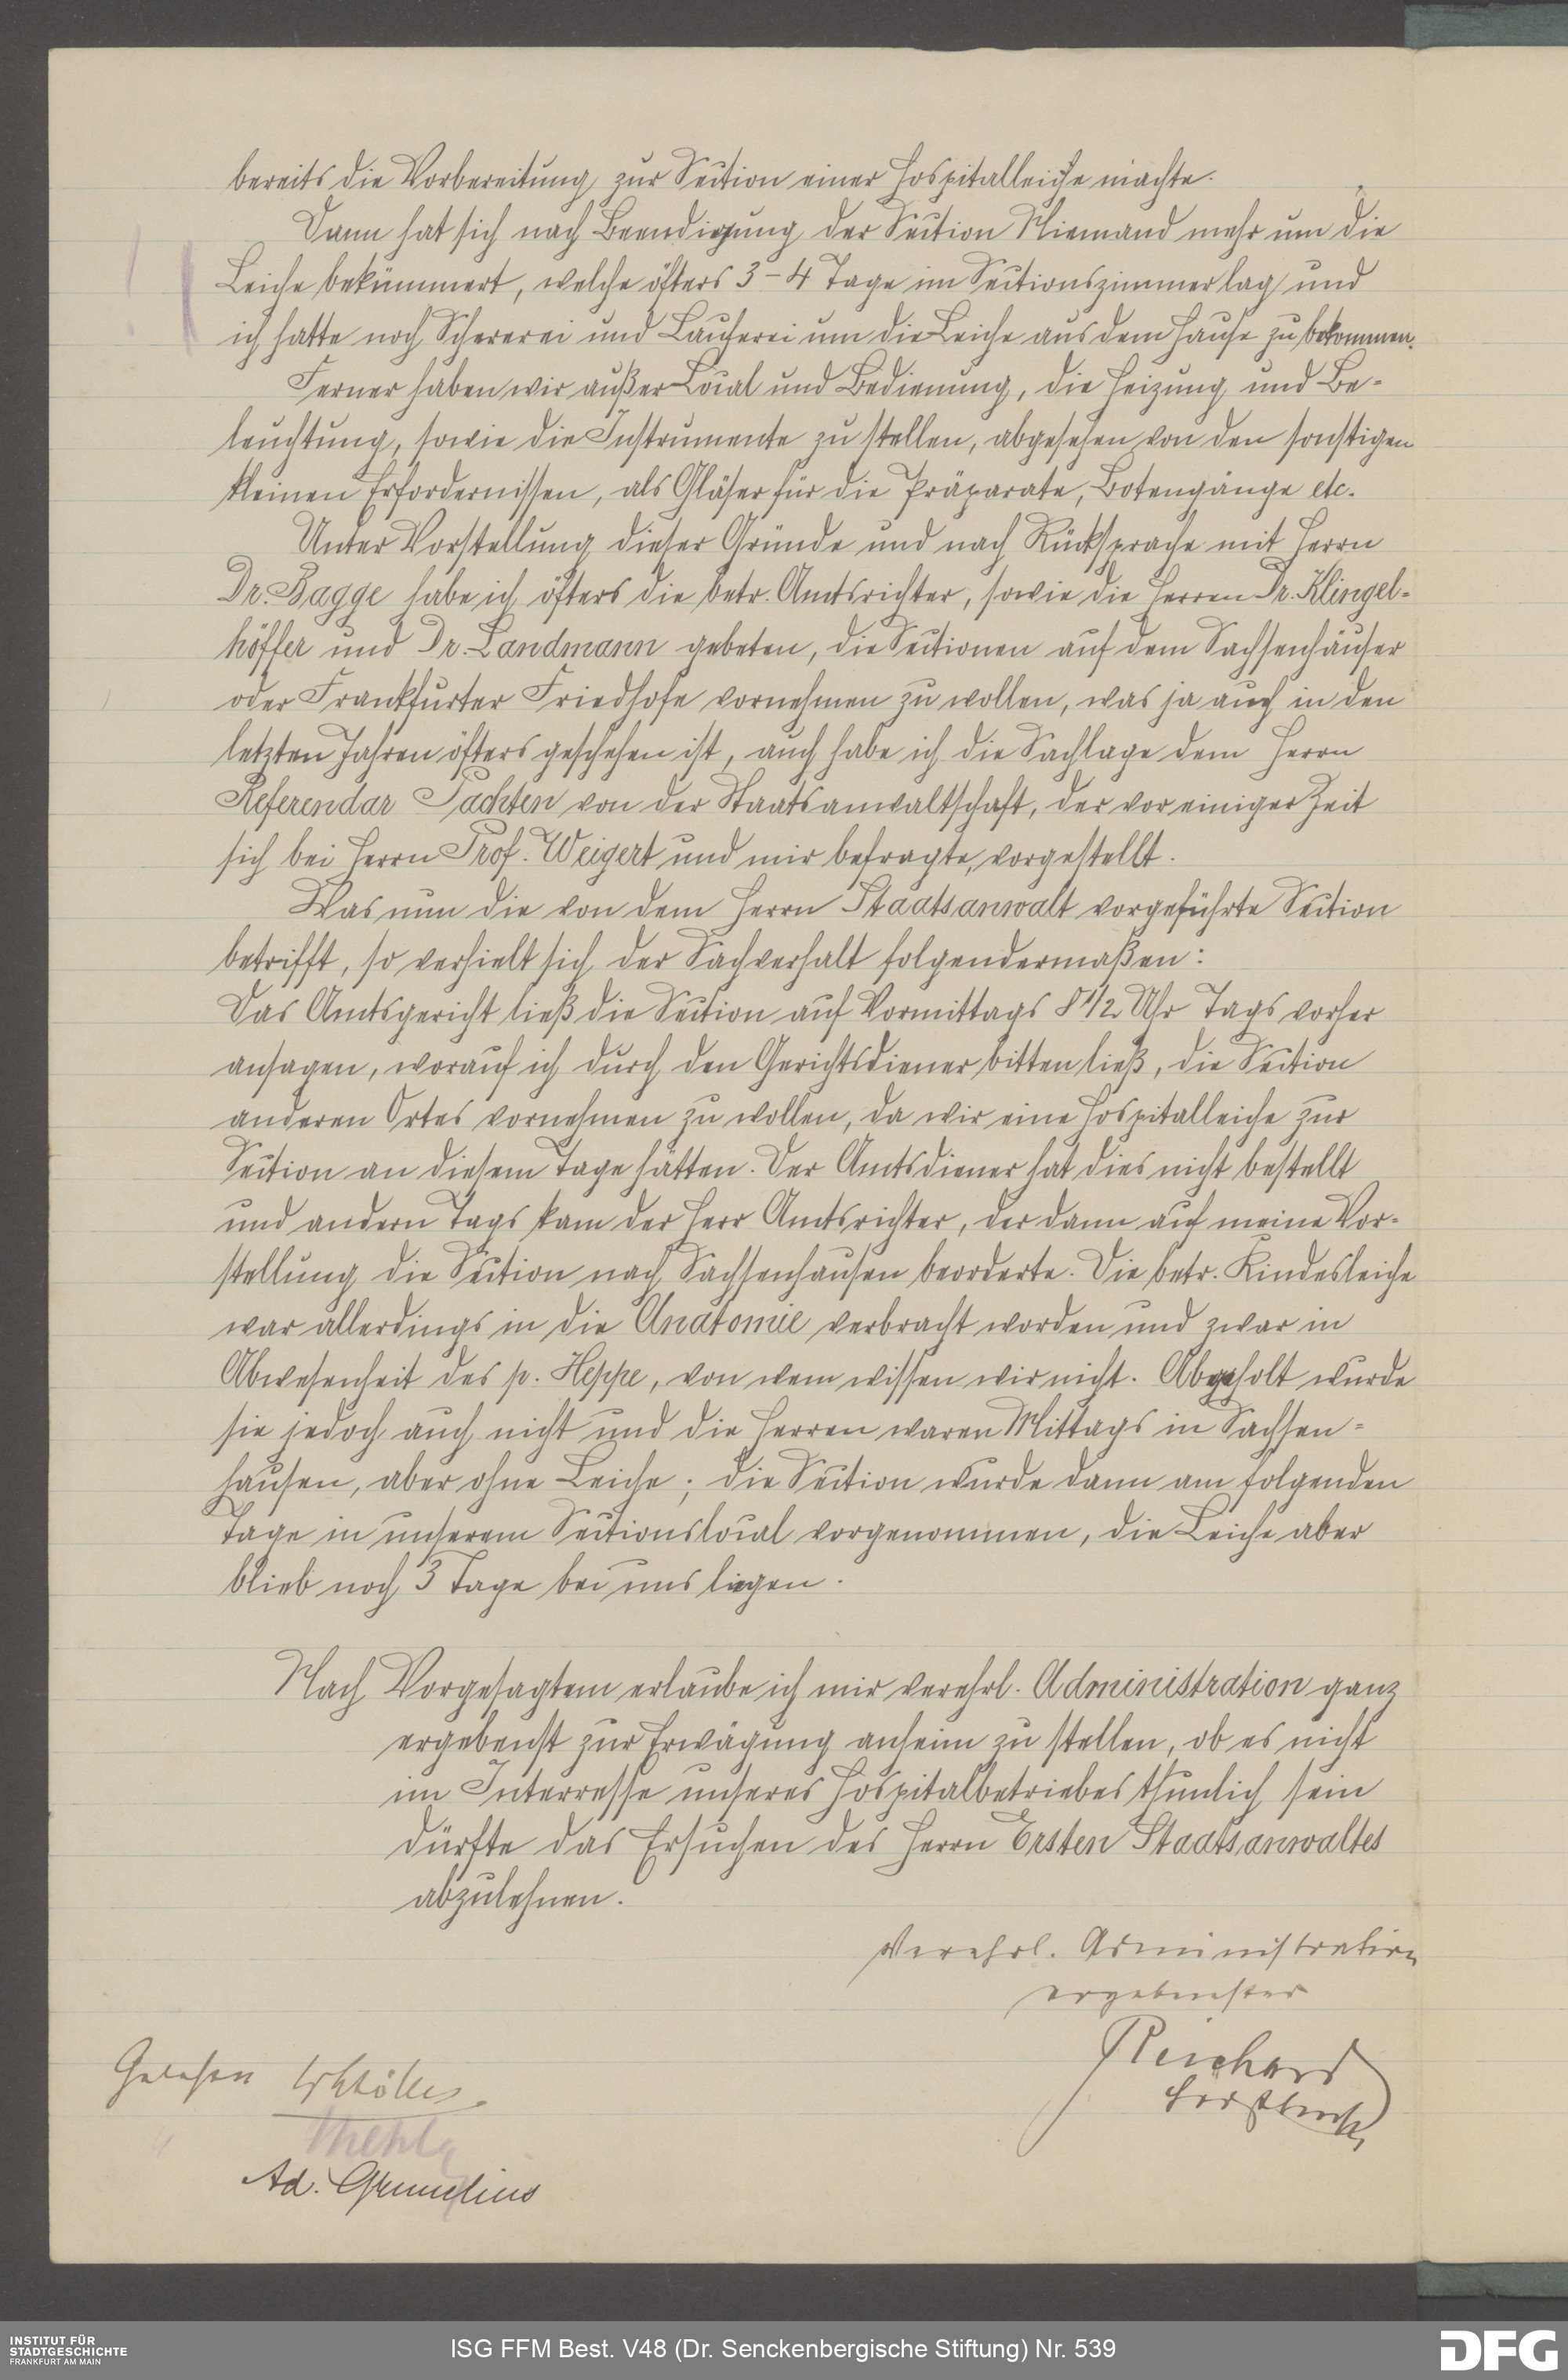 bereits die Vorbereitung zur Section einer Hospitalleiche machte.
Dann hat sich nach Beendigung der Section Niemand mehr um die
Leiche bekümmert, welche öfters 3-4 Tage im Sectionszimmer lag und
ich hatte noch Schererei und Lauferei um die Leiche aus dem Hause zu bekommen.
Ferner haben wir außer Local und Bedienung, die Heizung und Be-
leuchtung, sowie die Instrumente zu stellen, abgesehen von den sonstigen
kleinen Erfordernissen, als Gläser für die Präparate, Botengänge etc.
Unter Vorstellung dieser Gründe und nach Rücksprache mit Herrn
Dr. Bagge habe ich öfters die betr. Amtsrichter, sowie die Herren Dr. Klingel-
höffer und Dr. Landmann gebeten, die Sectionen auf dem Sachsenhäuser
oder Frankfurter Friedhofe vornehmen zu wollen, was ja auch in den
letzten Jahren öfters geschehen ist, auch habe ich die Sachlage dem Herrn
Referendar Pachten von der Staatsanwaltschaft, der vor einiger Zeit
sich bei Herrn Prof. Weigert und mir befragte, vorgestellt.
Was nun die von dem Herrn Staatsanwalt vorgeführte Section
betrifft, so verhielt sich der Sachverhalt folgendermaßen:
Das Amtsgericht ließ die Section auf Vormittags 8 1/2 Uhr Tags vorher
ansagen, worauf ich durch den Gerichtsdiener bitten ließ, die Section
anderen Ortes vornehmen zu wollen, da wir eine Hospitalleiche zur
Section an diesem Tage hätten. Der Amtsdiener hat dies nicht bestellt
und andern Tags kam der Herr Amtsrichter, der dann auf meine Vor-
stellung die Section nach Sachsenhausen beorderte. Die betr. Kindesleiche
war allerdings in die Anatomie verbracht worden und zwar in
Abwesenheit des p. Heppe, von wem wissen wir nicht. Abgeholt wurde
sie jedoch auch nicht und die Herren waren Mittags in Sachsen-
hausen, aber ohne Leiche; die Section wurde dann am folgenden
Tage in unserem Sectionslocal vorgenommen, die Leiche aber
blieb noch 3 Tage bei uns liegen.
Nach Vorgesagtem erlaube ich mir verehrl. Administration ganz
ergebenst zur Erwägung anheim zu stellen, ob es nicht
im Interresse unseres Hospitalbetriebes thunlich sein
dürfte das Ersuchen des Herrn Ersten Staatsanwaltes
abzulehnen.
Verehrl. Administration
ergebenster
Reichard
Gelesen
Ad. Grunelius
INSTITUT FÜR
STADTGESCHICHTE
FRANKFURT AM MAIN
ISG FFM Best. V48 (Dr. Senckenbergische Stiftung) Nr. 539
DFG